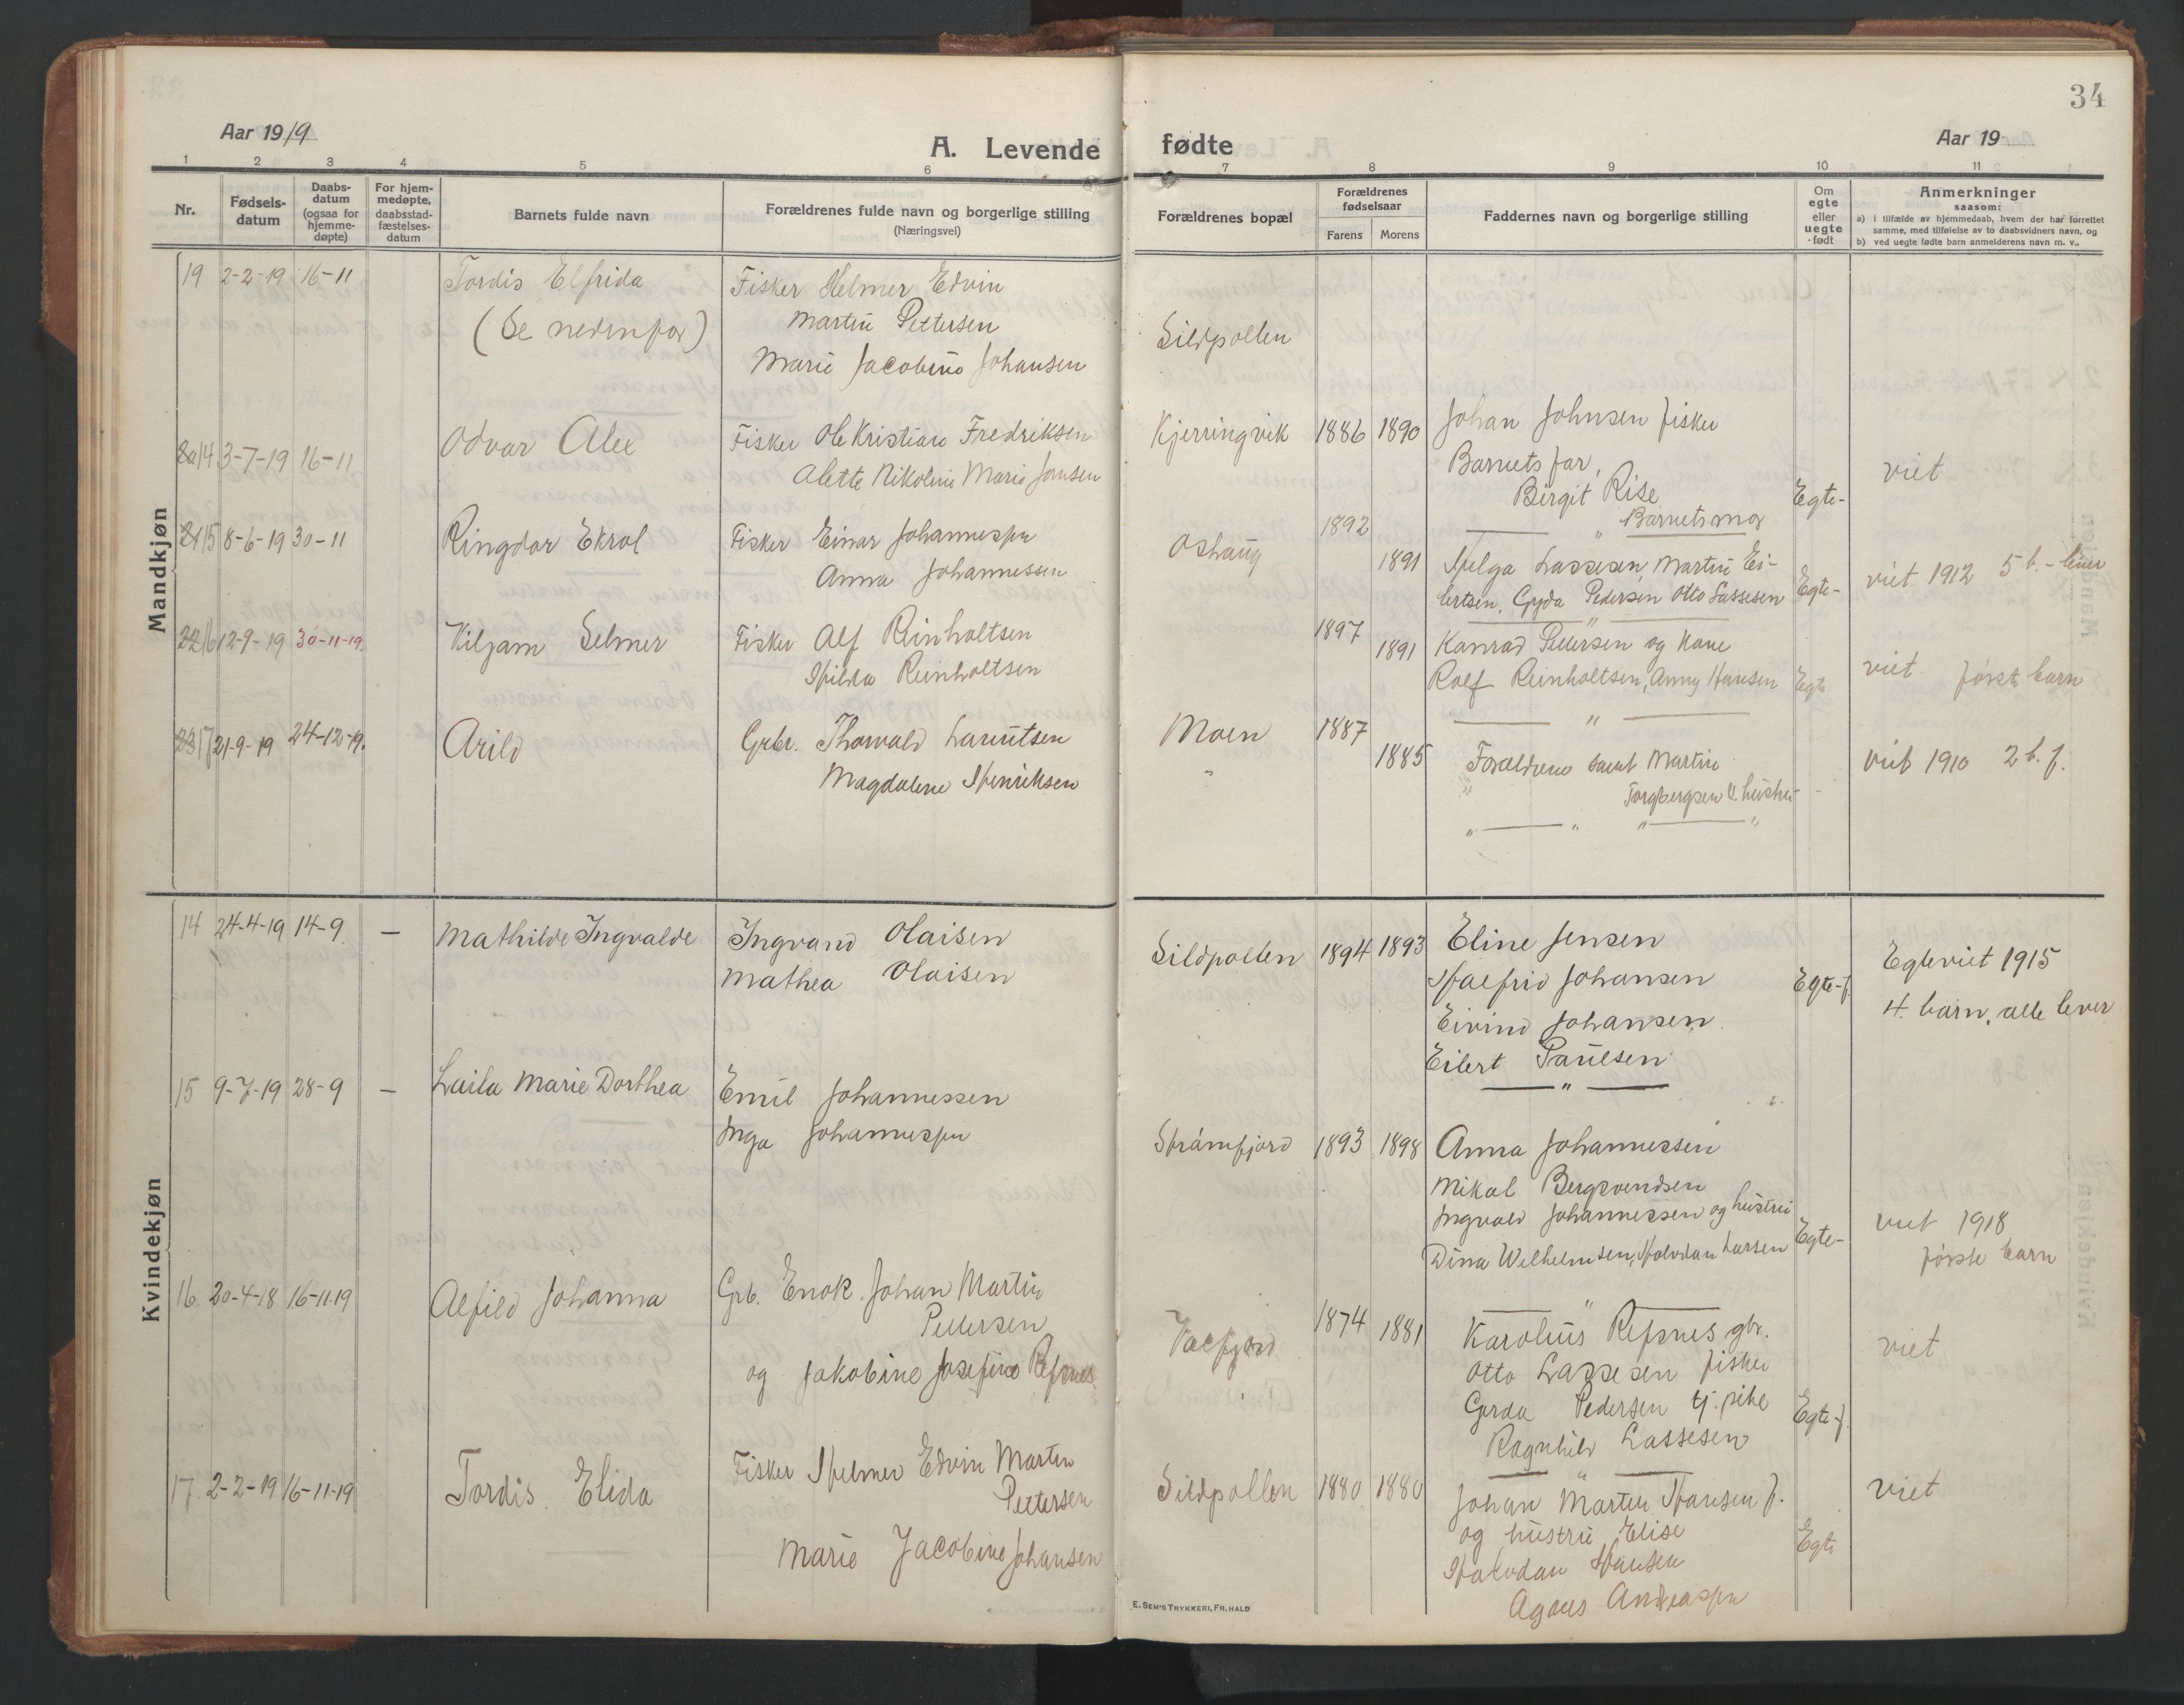 34
Aar 1919
A. Levende fødte
Aar 19
1 2 3 4 5 6 7 8 9 10 11
Nr.
Fødsels-
datum
Daabs-
datum
(ogsaa for
hjemme-
døpte)
For hjem-
medøpte,
daabsstad-
fæstelses-
datum
Barnets fulde navn
Forældrenes fulde navn og borgerlige stilling
(Næringsvei)
Forældrenes bopæl
Forældrenes
fødselsaar
Farens Morens
Faddernes navn og borgerlige stilling
Om
egte
eller
uegte
født
Anmerkninger
saasom:
a) i tilfælde av hjemmedaab, hvem der har forrettet
samme, med tilføielse av to daabsvidners navn, og
b) ved uegte fødte barn anmelderens navn m. v..
Mandkjøn
19 2-2-19 16-11 Tordis Elfrida Fisker Helmer Edvin
(Se nedenfor) Martin Pettersen
Sildpollen
Marie Jacobine Johansen
14 3-7-19 16-11 Odvar Alex Fisker Ole Kristian Fredriksen Kjerringvik 1886 1890 Johan Johnsen fisker
Alette Nikoline Marie Jonsen Barnets far, viet
Birgit Rise Egte-
" Barnets mor
15 8-6-19 30-11 Ringdor Ekrol Fisker Einar Johannessen Oshaug 1892
Anna Johannessen 1891 Helga Lassesen, Martin Ei-
lertsen, Gyda Pedersen, Otto Lassesen Egte- viet 1912 5 b. - lever
"
16 12-9-19 30-11-19. Viljam Selmer Fisker Alf Reinholtsen 1897 1891 Konrad Pettersen og Kone
Hilda Reinholtsen Rolf Reinholtsen, Anny Hansen Egte viet. første barn
"
17 21-9-19 24-12-19. Arild Grbr. Thorvald Laruitsen Moen 1887
Magdalene Henriksen " 1885 Forældrene samt Martin viet 1910 2 b. f.
Torgbergsen & hustru -
" " " "
Kvindekjøn
14 24-4-19 14-9. - Mathilde Ingvalde Ingvard Olaisen Sildpollen 1894 1893 Eline Jensen
Mathea Olaisen Halfrid Johansen Egte-f. Egteviet 1915
Eivind Johansen 4. barn, alle lever
Eilert Paulsen
"
15 9-7-19 28-9 - Laila Marie Dorthea Emil Johannessen
Inga Johannessen
Straumfjord 1893 1898 Anna Johannessen
Mikal Bergsvendsen
Ingvald Johannessen og hustru viet 1918
Dina Wilhelmsen, Halvdan Larsen Egte- første barn
"
16. 20-4-18 16-11-19 Alfild Johanna Grb. Enok Johan Martin
Pettersen
og Jakobine Josefine Refsnes
Valfjord 1874 1881 Karolius Refsnes gbr. viet
Otto Lassesen fisker
Gerda Pedersen tj. pike Egte-f.
Ragnhild Lassesen
"
17. 2-2-19 16-11-19 Tordis Elida Fisker Helmer Edvin Martin
Pettersen
Marie Jacobine Johansen
Sildpollen 1880 1880 Johan Martin Hansen f. viet
og hustru Elise Egte
Halvdan Hansen
Agnes Andreassen
E. SEM'S TRYKKERI, FR. HALD